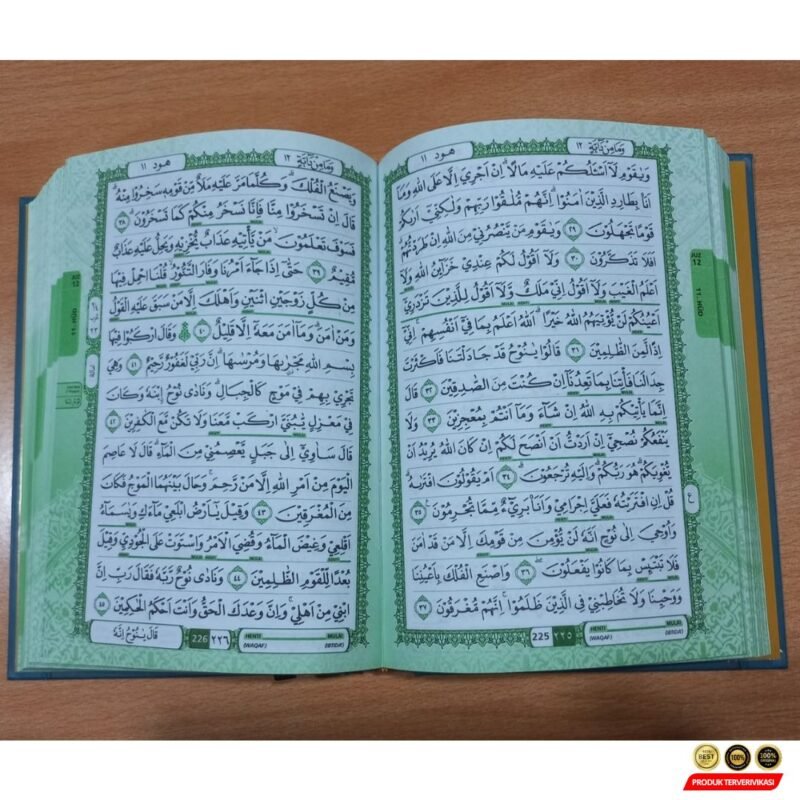 وَمَا مِنْ دَآبَّةٍ ١٢
هود ١١
وَيٰقَوْمِ لَآ اَسْـَٔلُكُمْ عَلَيْهِ مَالًاۗ اِنْ اَجْرِيَ اِلَّا عَلَى اللّٰهِ وَمَآ
اَنَا۠ بِطَارِدِ الَّذِيْنَ اٰمَنُوْاۗ اِنَّهُمْ مُّلٰقُوْا رَبِّهِمْ وَلٰكِنِّيْٓ اَرٰىكُمْ
قَوْمًا تَجْهَلُوْنَ ٢٩ وَيٰقَوْمِ مَنْ يَّنْصُرُنِيْ مِنَ اللّٰهِ اِنْ طَرَدْتُّهُمْۗ
اَفَلَا تَذَكَّرُوْنَ ٣٠ وَلَآ اَقُوْلُ لَكُمْ عِنْدِيْ خَزَاۤىِٕنُ اللّٰهِ وَلَآ
اَعْلَمُ الْغَيْبَ وَلَآ اَقُوْلُ اِنِّيْ مَلَكٌ وَّلَآ اَقُوْلُ لِلَّذِيْنَ تَزْدَرِيْٓ
اَعْيُنُكُمْ لَنْ يُّؤْتِيَهُمُ اللّٰهُ خَيْرًاۗ اَللّٰهُ اَعْلَمُ بِمَا فِيْٓ اَنْفُسِهِمْۚ اِنِّيْٓ
اِذًا لَّمِنَ الظّٰلِمِيْنَ ٣١ قَالُوْا يٰنُوْحُ قَدْ جَادَلْتَنَا فَاَكْثَرْتَ
جِدَالَنَا فَأْتِنَا بِمَا تَعِدُنَآ اِنْ كُنْتَ مِنَ الصّٰدِقِيْنَ ٣٢ قَالَ
اِنَّمَا يَأْتِيْكُمْ بِهِ اللّٰهُ اِنْ شَاۤءَ وَمَآ اَنْتُمْ بِمُعْجِزِيْنَ ٣٣ وَلَا
يَنْفَعُكُمْ نُصْحِيْٓ اِنْ اَرَدْتُّ اَنْ اَنْصَحَ لَكُمْ اِنْ كَانَ اللّٰهُ يُرِيْدُ اَنْ
يُّغْوِيَكُمْۗ هُوَ رَبُّكُمْۗ وَاِلَيْهِ تُرْجَعُوْنَۗ ٣٤ اَمْ يَقُوْلُوْنَ افْتَرٰىهُۗ
قُلْ اِنِ افْتَرَيْتُهٗ فَعَلَيَّ اِجْرَامِيْ وَاَنَا۠ بَرِيْۤءٌ مِّمَّا تُجْرِمُوْنَ ٣٥
وَاُوْحِيَ اِلٰى نُوْحٍ اَنَّهٗ لَنْ يُّؤْمِنَ مِنْ قَوْمِكَ اِلَّا مَنْ قَدْ اٰمَنَ
فَلَا تَبْتَىِٕسْ بِمَا كَانُوْا يَفْعَلُوْنَ ٣٦ وَاصْنَعِ الْفُلْكَ بِاَعْيُنِنَا
وَوَحْيِنَا وَلَا تُخَاطِبْنِيْ فِى الَّذِيْنَ ظَلَمُوْاۚ اِنَّهُمْ مُّغْرَقُوْنَ ٣٧
HENTI (WAQAF)
225 ٢٢٥
MULAI (IBTIDA')
JUZ 12
11. HŪD
ع
وَمَا مِنْ دَآبَّةٍ ١٢
هود ١١
وَيَصْنَعُ الْفُلْكَۗ وَكُلَّمَا مَرَّ عَلَيْهِ مَلَاٌ مِّنْ قَوْمِهٖ سَخِرُوْا مِنْهُۗ
قَالَ اِنْ تَسْخَرُوْا مِنَّا فَاِنَّا نَسْخَرُ مِنْكُمْ كَمَا تَسْخَرُوْنَۗ ٣٨
فَسَوْفَ تَعْلَمُوْنَۙ مَنْ يَّأْتِيْهِ عَذَابٌ يُّخْزِيْهِ وَيَحِلُّ عَلَيْهِ عَذَابٌ
مُّقِيْمٌ ٣٩ حَتّٰىٓ اِذَا جَاۤءَ اَمْرُنَا وَفَارَ التَّنُّوْرُۙ قُلْنَا احْمِلْ فِيْهَا
مِنْ كُلٍّ زَوْجَيْنِ اثْنَيْنِ وَاَهْلَكَ اِلَّا مَنْ سَبَقَ عَلَيْهِ الْقَوْلُ
وَمَنْ اٰمَنَۗ وَمَآ اٰمَنَ مَعَهٗٓ اِلَّا قَلِيْلٌ ٤٠ وَقَالَ ارْكَبُوْا فِيْهَا
بِسْمِ اللّٰهِ مَجْرٰ۪ىهَا وَمُرْسٰىهَاۗ اِنَّ رَبِّيْ لَغَفُوْرٌ رَّحِيْمٌ ٤١ وَهِيَ
تَجْرِيْ بِهِمْ فِيْ مَوْجٍ كَالْجِبَالِۗ وَنَادٰى نُوْحُ ِۨابْنَهٗ وَكَانَ
فِيْ مَعْزِلٍ يّٰبُنَيَّ ارْكَبْ مَّعَنَا وَلَا تَكُنْ مَّعَ الْكٰفِرِيْنَ ٤٢
قَالَ سَاٰوِيْٓ اِلٰى جَبَلٍ يَّعْصِمُنِيْ مِنَ الْمَاۤءِۗ قَالَ لَا عَاصِمَ
الْيَوْمَ مِنْ اَمْرِ اللّٰهِ اِلَّا مَنْ رَّحِمَۚ وَحَالَ بَيْنَهُمَا الْمَوْجُ فَكَانَ
مِنَ الْمُغْرَقِيْنَ ٤٣ وَقِيْلَ يٰٓاَرْضُ ابْلَعِيْ مَاۤءَكِ وَيٰسَمَاۤءُ
اَقْلِعِيْ وَغِيْضَ الْمَاۤءُ وَقُضِيَ الْاَمْرُ وَاسْتَوَتْ عَلَى الْجُوْدِيِّ وَقِيْلَ
بُعْدًا لِّلْقَوْمِ الظّٰلِمِيْنَ ٤٤ وَنَادٰى نُوْحٌ رَّبَّهٗ فَقَالَ رَبِّ اِنَّ
ابْنِيْ مِنْ اَهْلِيْۚ وَاِنَّ وَعْدَكَ الْحَقُّ وَاَنْتَ اَحْكَمُ الْحٰكِمِيْنَ ٤٥
قَالَ يٰنُوْحُ اِنَّهٗ
226 ٢٢٦
HENTI (WAQAF)
MULAI (IBTIDA')
JUZ 12
11. HŪD
BEST
100%
100%
PRODUK TERVERIVIKASI